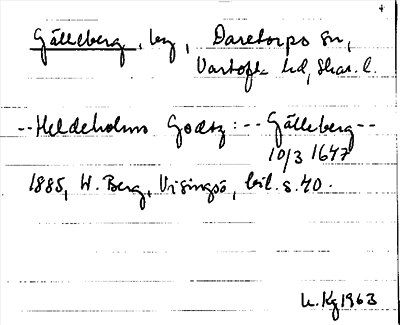 Gälleberg, by, Daretorps sn,
Vartofta hd, Skar. l.
--Heldeholms Godtz:-- Gälleberg--
10/3 1647
1885, W. Berg, Visingsö, bil. s. 40.
U. Kg 1963